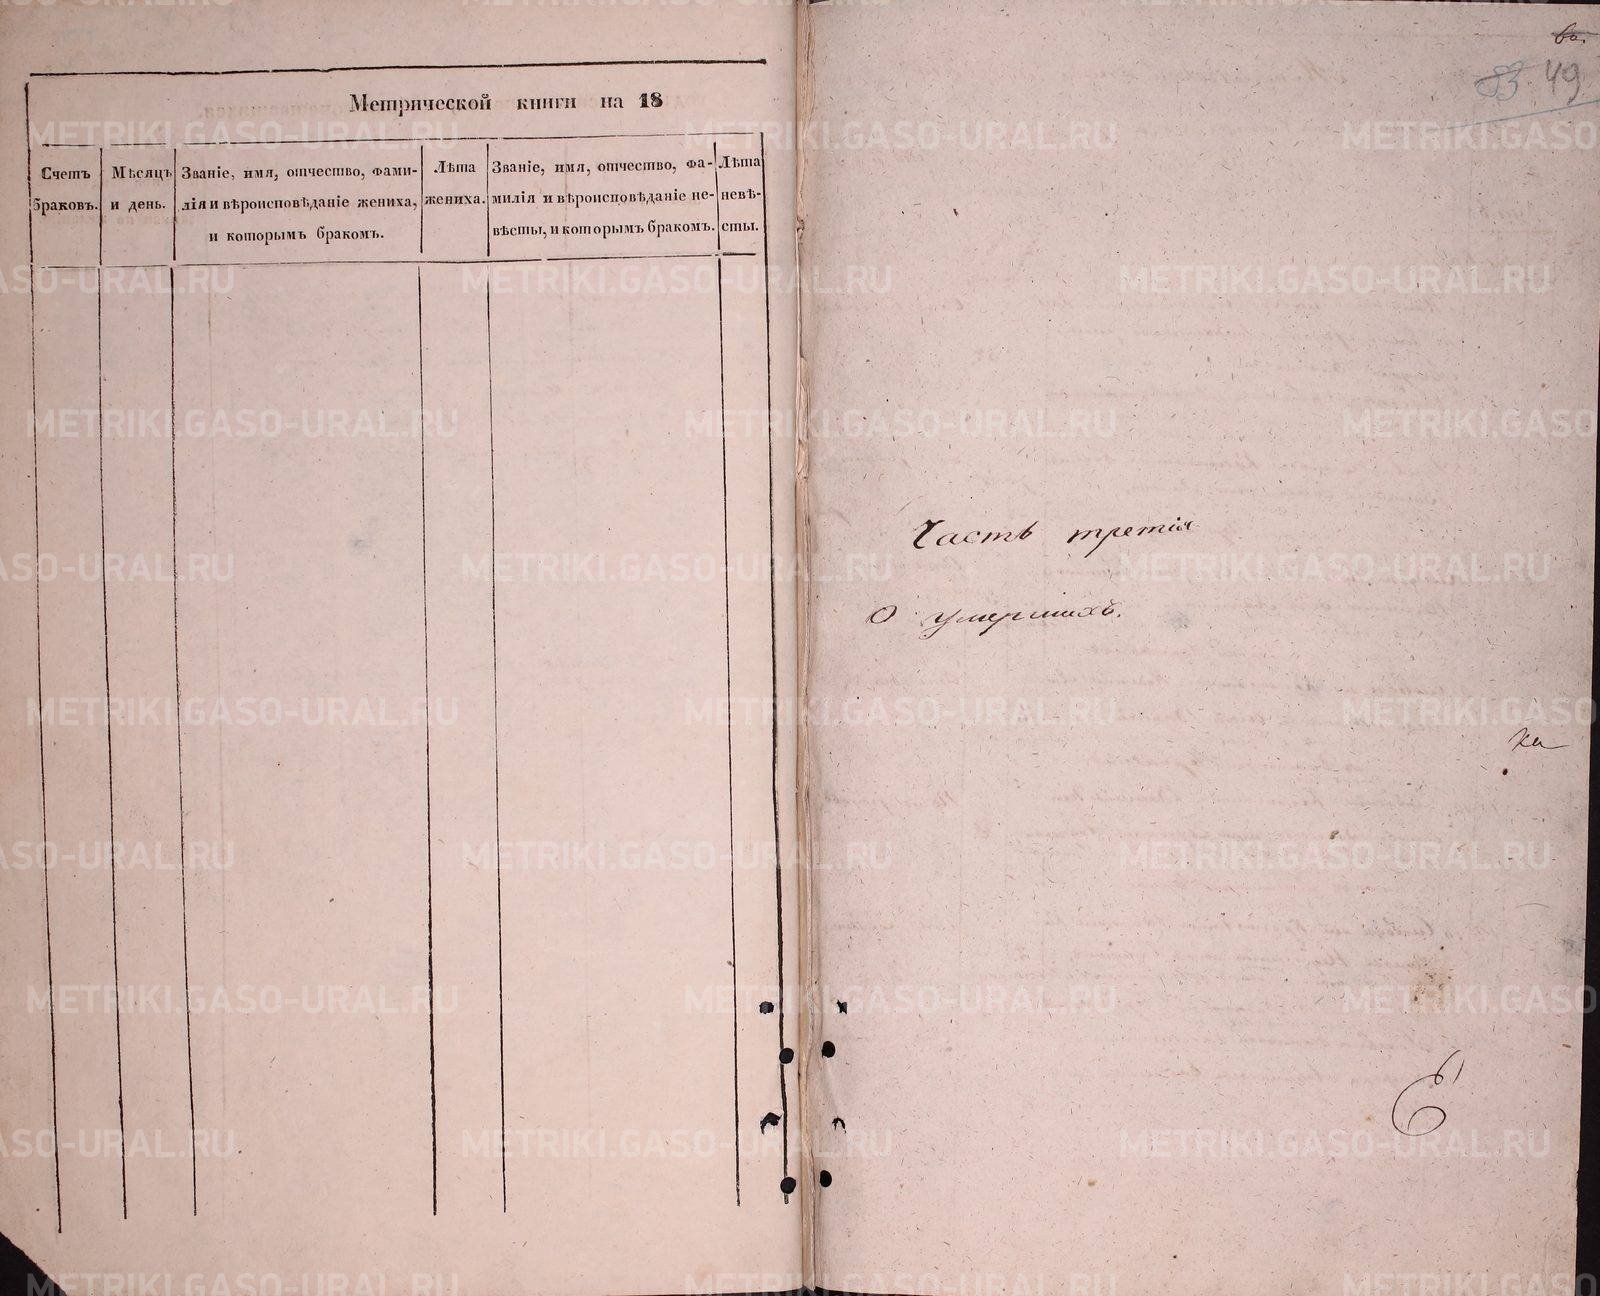 Метрической книги на 18
Счетъ
браковъ.
Мѣсяцъ
и день.
Званіе, имя, отчество, фами-
лія и вѣроисповѣданіе жениха,
и которымъ бракомъ.
Лѣта
жениха.
Званіе, имя, отчество, фа-
милія и вѣроисповѣданіе не-
вѣсты, и которымъ бракомъ.
Лѣта
невѣ-
сты.
83 49
Часть третія
О умершихъ.
METRIKI.GASO-URAL.RU